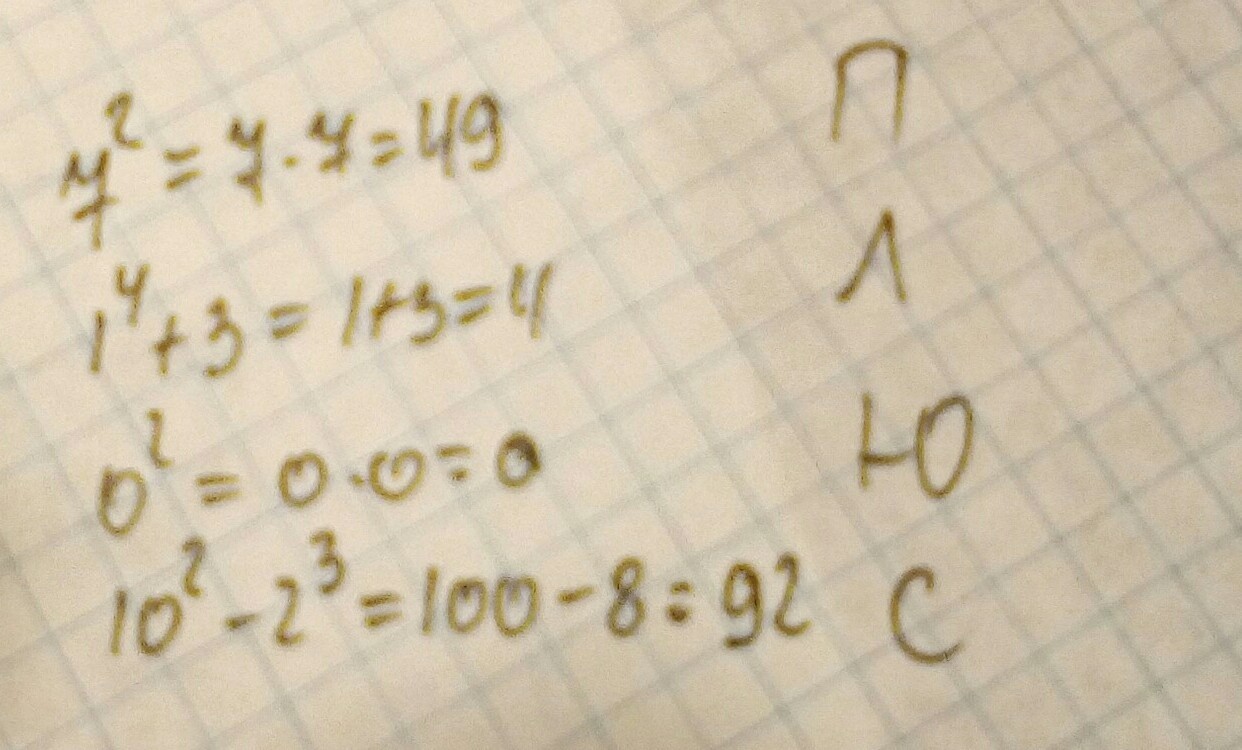 7² = 7·7=49 П
1⁴+3 = 1+3=4 Л
0² = 0·0=0 Ю
10²-2³=100-8=92 С